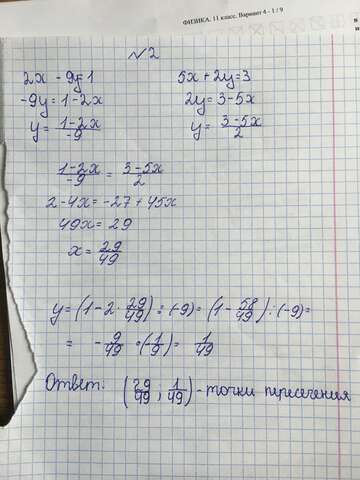 ФИЗИКА. 11 класс. Вариант 4 - 1 / 9
№2
2x - 9y = 1
-9y = 1 - 2x
y = (1-2x)/(-9)
5x + 2y = 3
2y = 3 - 5x
y = (3-5x)/2
(1-2x)/(-9) = (3-5x)/2
2 - 4x = -27 + 45x
49x = 29
x = 29/49
y = (1 - 2 · 29/49) : (-9) = (1 - 58/49) : (-9) =
= - 9/49 · (-1/9) = 1/49
Ответ: (29/49 ; 1/49) - точки пересечения